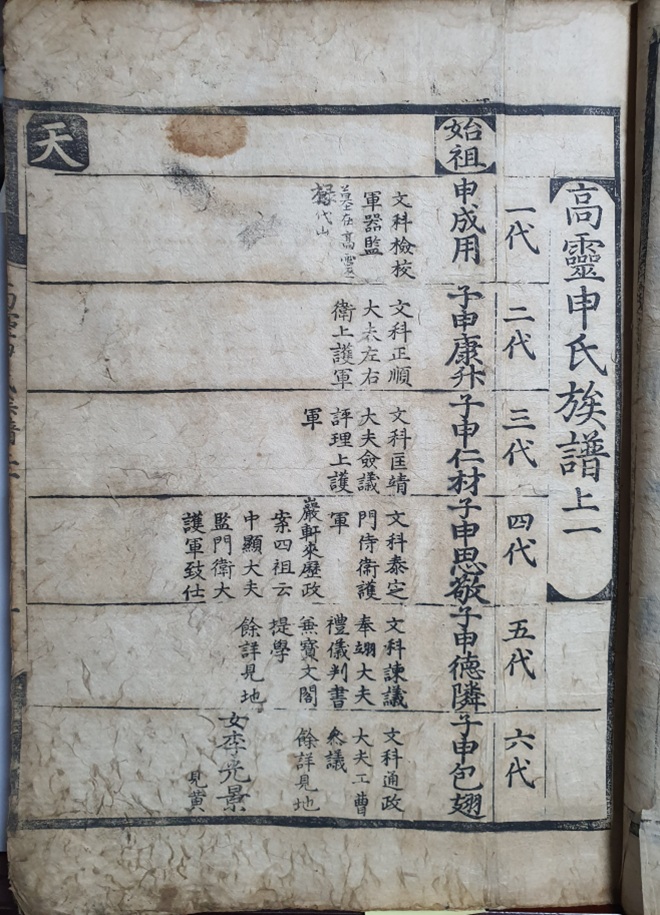 高靈申氏族譜上一
一代
二代
三代
四代
五代
六代
始祖
申成用
文科檢校
軍器監
墓在高靈
代山
子申康升
文科正順
大夫左右
衛上護軍
子申仁材
文科匡靖
大夫僉議
評理上護
軍
子申思敬
文科泰定
門侍衛護
軍
巖軒來歷政
案四祖云
中顯大夫
監門衛大
護軍致仕
子申德隣
文科諫議
奉翊大夫
禮儀判書
兼寶文閣
提學
餘詳見地
子申包翅
文科通政
大夫工曹
參議
餘詳見地
女李光景
見黃
天